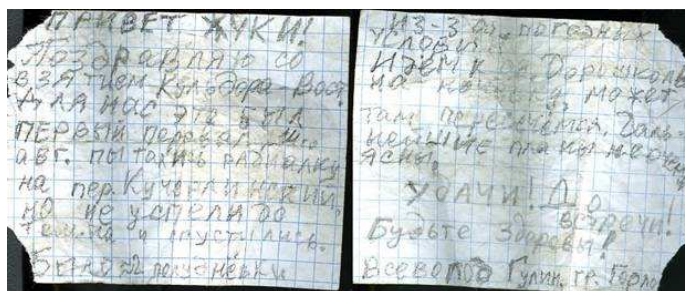 ПРИВЕТ ЖУКИ!
Поздравляю со
взятием Кульдора-Вост.
Для нас это был
ПЕРВЫЙ перевал
авг. пытались радиалку
на пер. Кучерлинский
но не успели до
темна и спустились.
Было 2 полуднёвки
Из-за погодных
условий.
Идём к оз. Дарашколь
на ночёвку, может
там пересечёмся. Даль-
нейшие планы не очень
ясны.
УДАЧИ! До
встречи!
Будьте здоровы!
Всеволод Гулин, гр. Горло